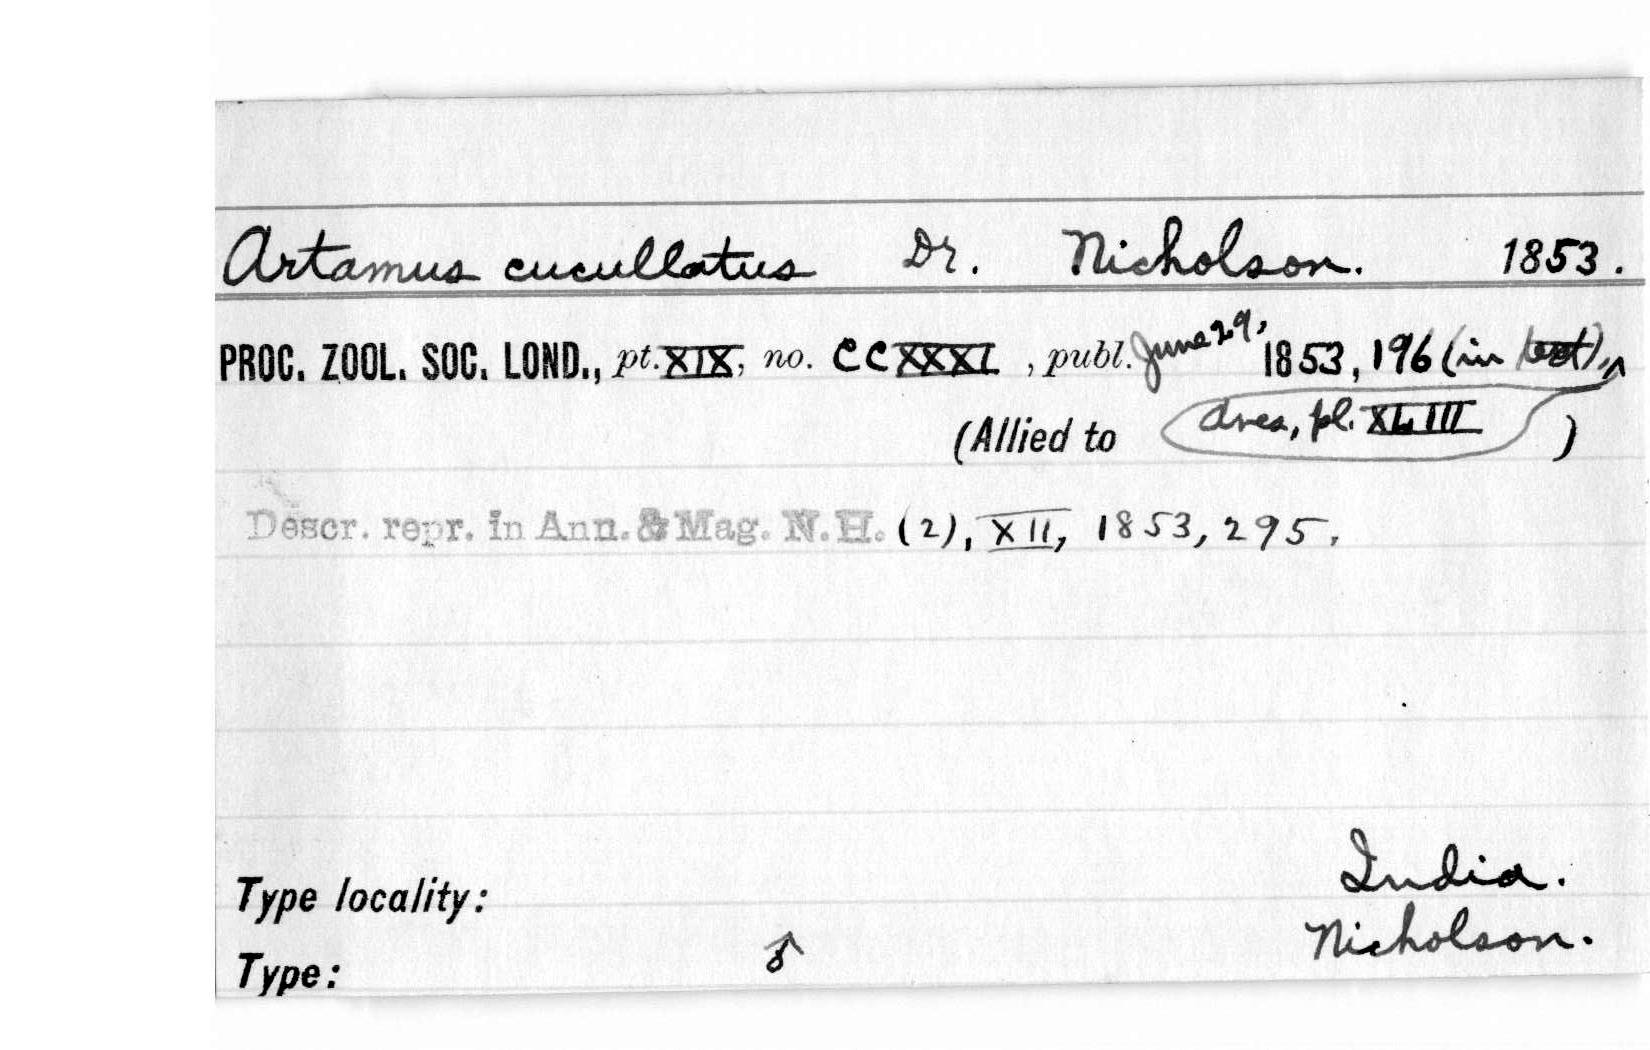 Artamus cucullatus Dr. Nicholson. 1853.
PROC. ZOOL. SOC. LOND., pt. XIX, no. CCXXXI, publ. June 29, 1853, 196 (in text),
(Allied to Aves, pl. XLIII )
Descr. repr. in Ann. & Mag. N. H. (2), XII, 1853, 295.
Type locality: India.
Type: ♂ Nicholson.